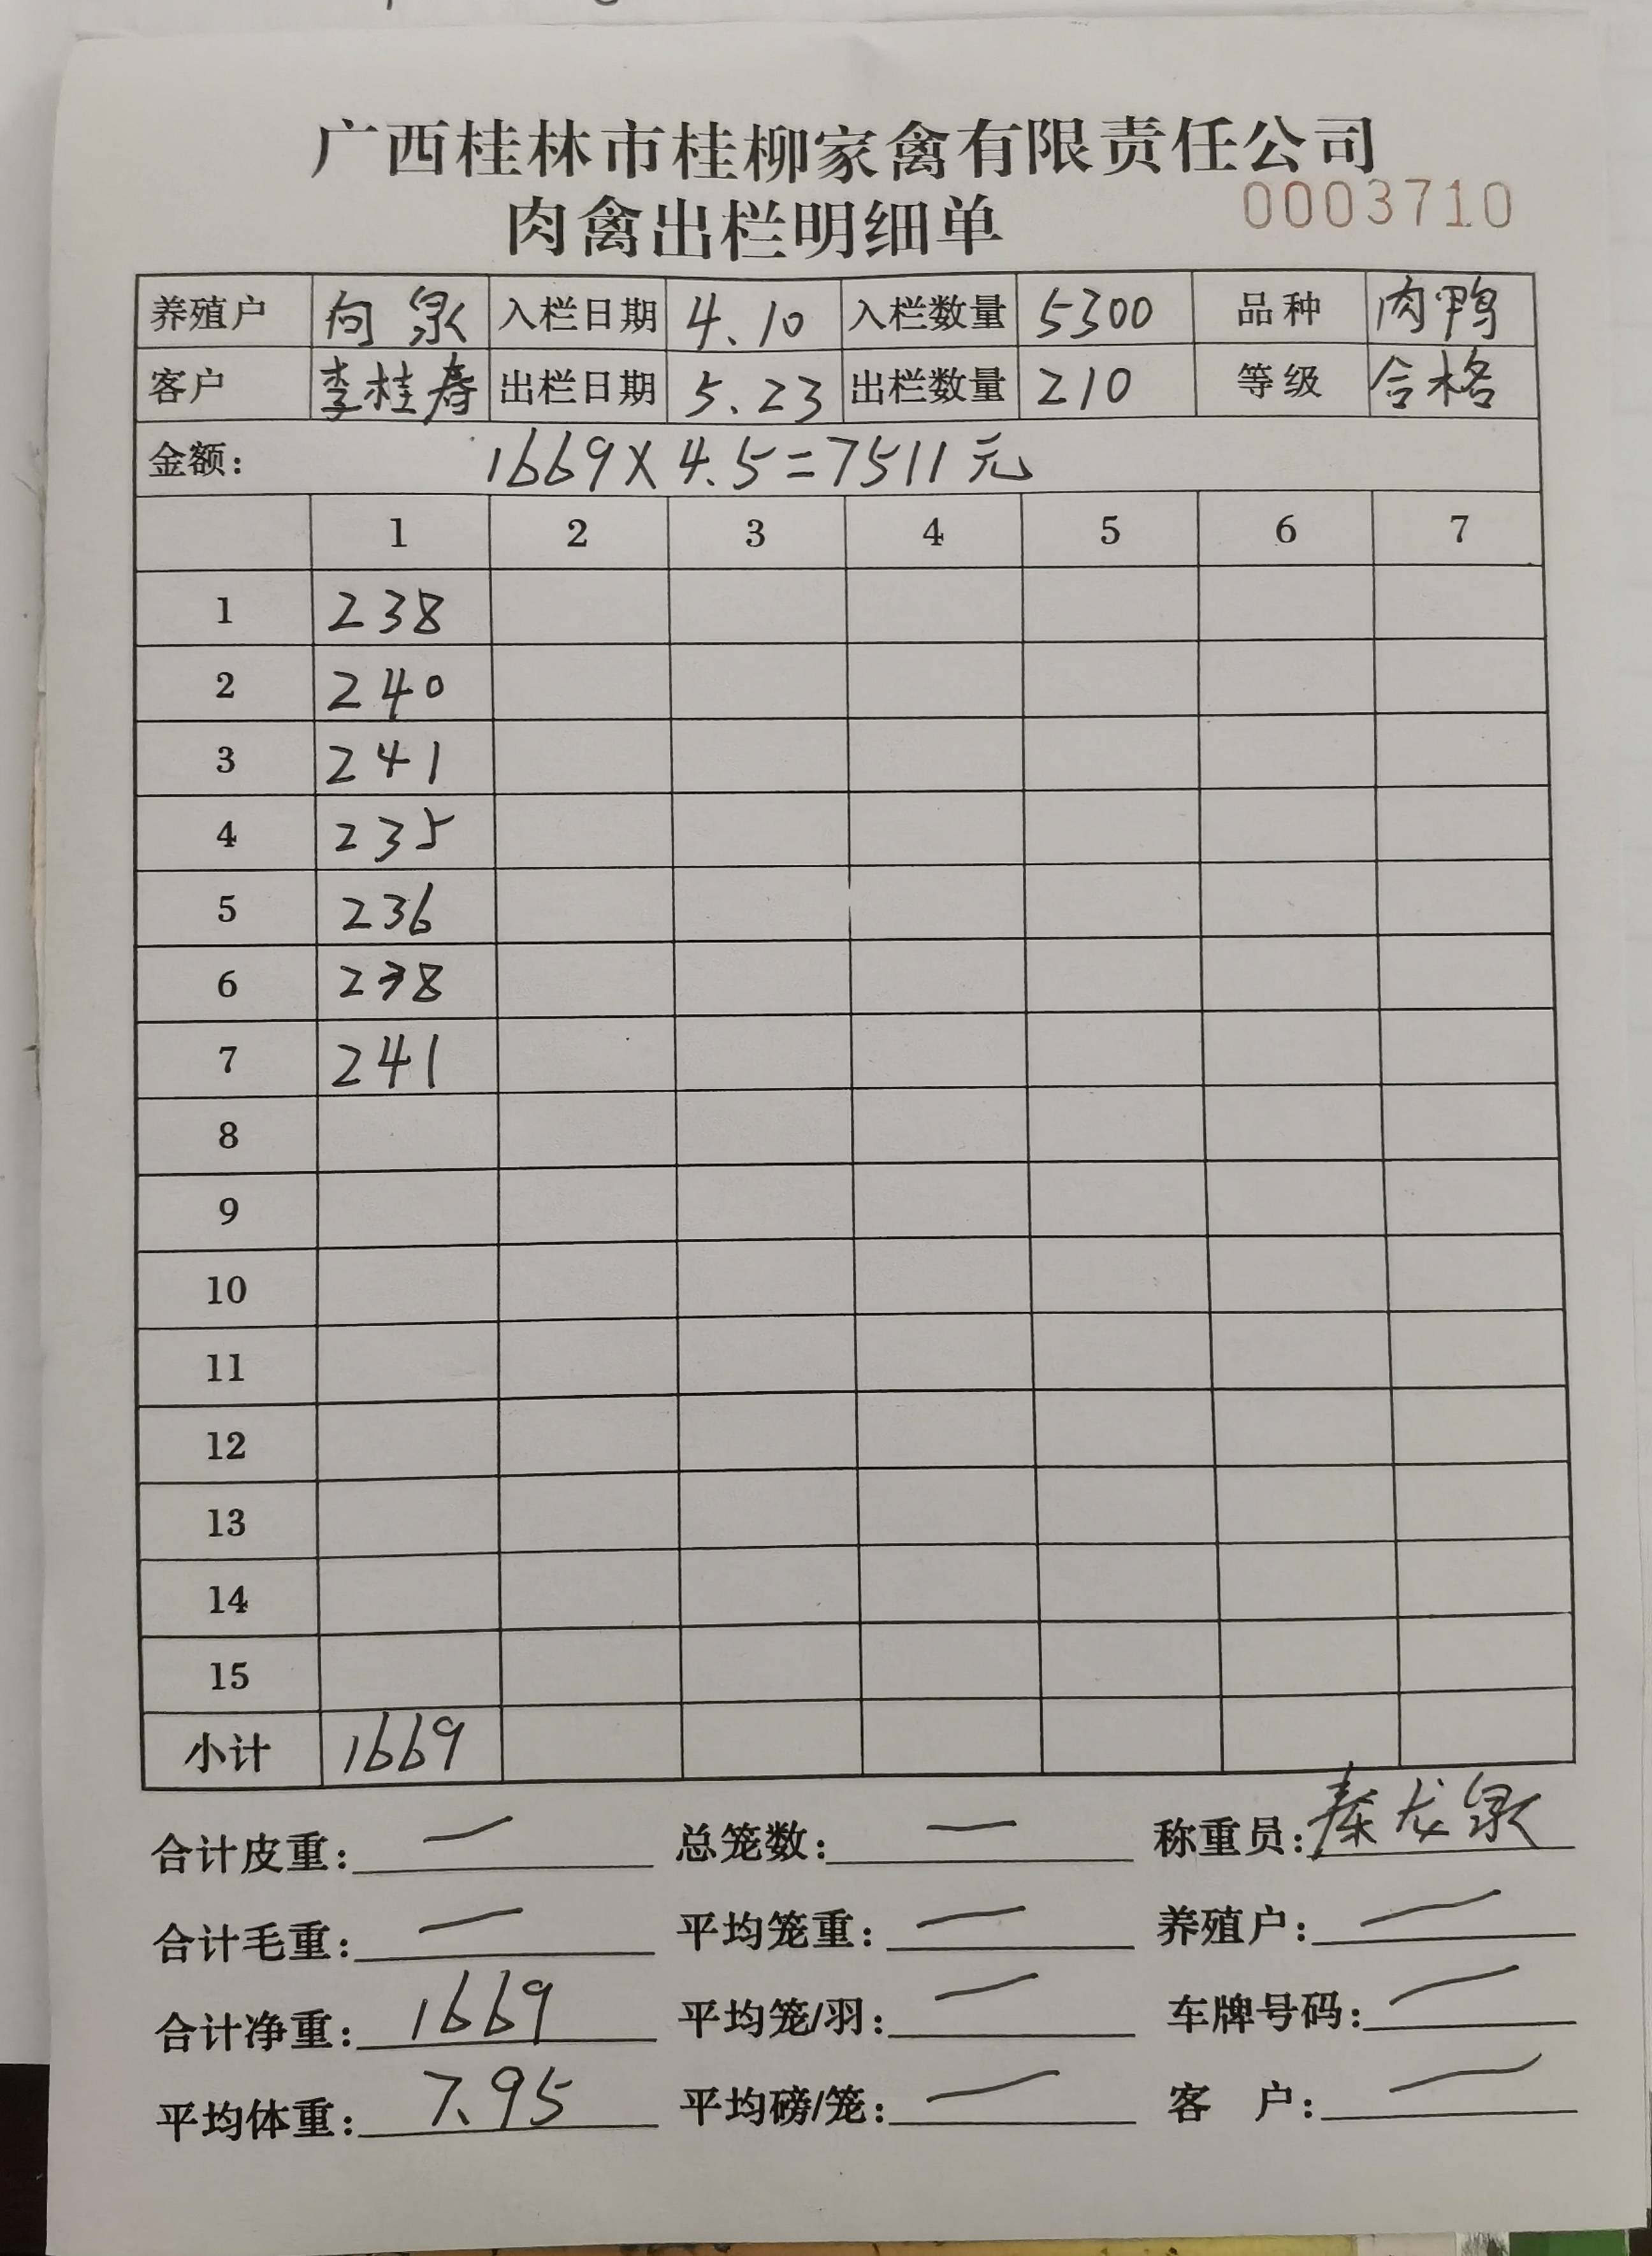 广西桂林市桂柳家禽有限责任公司
肉禽出栏明细单
0003710
养殖户 向泉 入栏日期 4.10 入栏数量 5300 品种 肉鸭
客户 李桂春 出栏日期 5.23 出栏数量 210 等级 合格
金额: 1669×4.5=7511元
1 2 3 4 5 6 7
1 238
2 240
3 241
4 235
5 236
6 238
7 241
8
9
10
11
12
13
14
15
小计 1669
合计皮重: — 总笼数: — 称重员: 秦龙泉
合计毛重: — 平均笼重: — 养殖户: —
合计净重: 1669 平均笼/羽: — 车牌号码: —
平均体重: 7.95 平均磅/笼: — 客 户: —